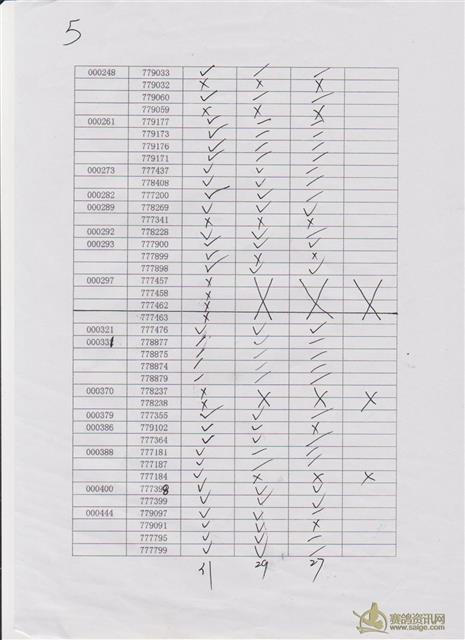 5
000248 779033 ✓ / /
779032 × × ×
779060 ✓ / /
779059 × × ×
000261 779177 ✓ / /
779173 ✓ / /
779176 ✓ / /
779171 ✓ / /
000273 777437 ✓ ✓ /
778408 ✓ ✓ /
000282 777200 ✓ ✓ /
000289 778269 ✓ ✓ ✓
777341 × × ×
000292 778228 ✓ ✓ /
000293 777900 ✓ ✓ ✓
777899 ✓ × ×
777898 ✓ ✓ ✓
000297 777457 × × × ×
777458 ×
777462 ×
777463 ×
000321 777476 ✓ ✓ ✓
000331 778877 / ✓ /
778875 / / /
778874 / / /
778879 / / /
000370 778237 × × × ×
778238 ×
000379 777355 ✓ ✓ /
000386 779102 ✓ ✓ ×
777364 ✓ ✓ /
000388 777181 ✓ / /
777187 ✓ / /
777184 ✓ × × ×
000400 777398 ✓ ✓ ✓
777399 ✓ ✓ ✓
000444 779097 ✓ ✓ /
779091 ✓ ✓ ×
777795 ✓ ✓ /
777799 ✓ ✓ /
29 27
赛鸽资讯网
www.saige.com